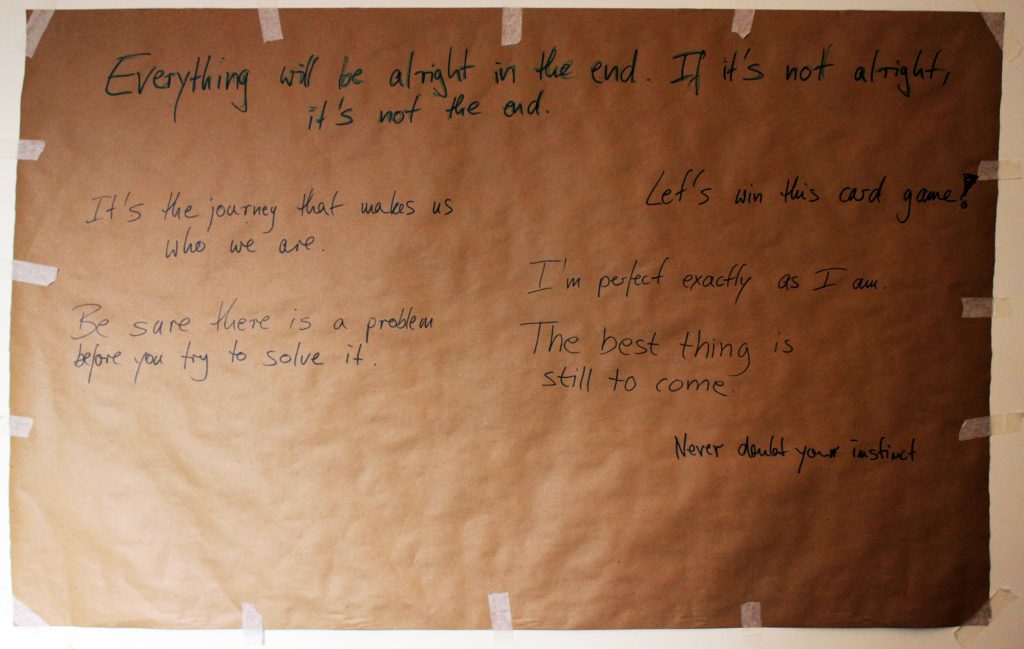 Everything will be alright in the end. If it's not alright,
it's not the end.
It's the journey that makes us
who we are.
Be sure there is a problem
before you try to solve it.
Let's win this card game!
I'm perfect exactly as I am.
The best thing is
still to come.
Never doubt your instinct